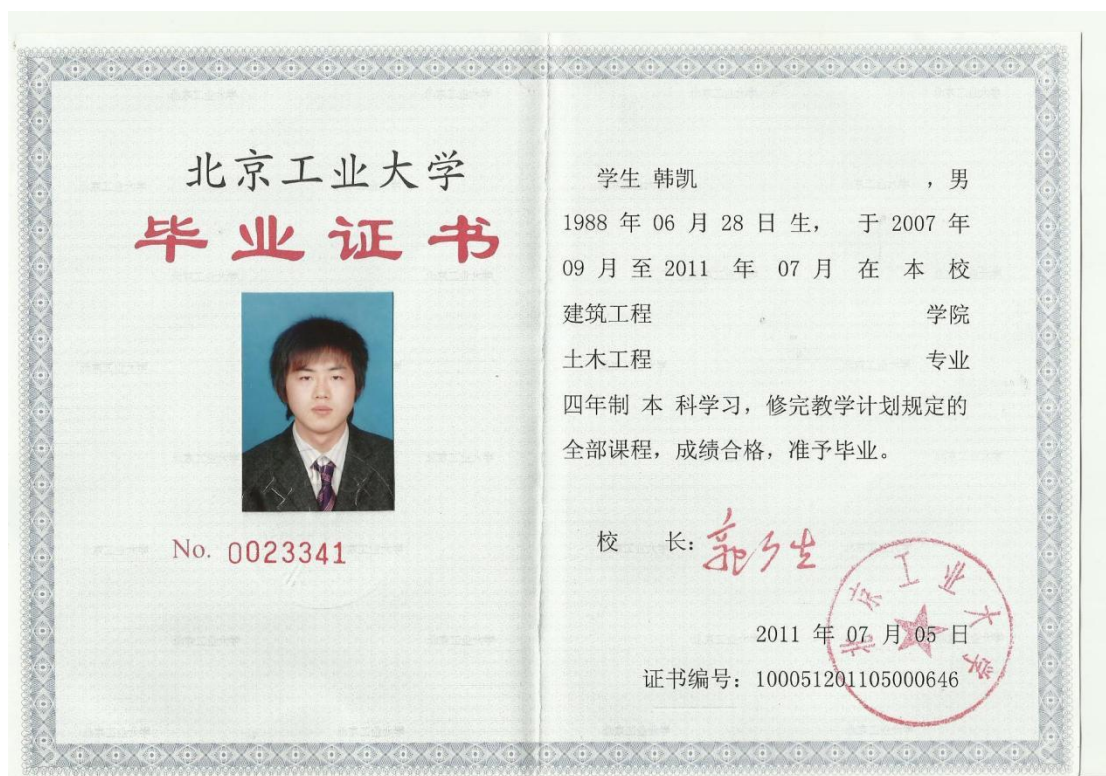 北京工业大学
毕业证书
No. 0023341
学生 韩凯 ，男
1988 年 06 月 28 日 生， 于 2007 年
09 月 至 2011 年 07 月 在 本 校
建筑工程 学院
土木工程 专业
四年制 本 科学习，修完教学计划规定的
全部课程，成绩合格，准予毕业。
校 长：
北京工业大学
2011 年 07 月 05 日
证书编号：100051201105000646